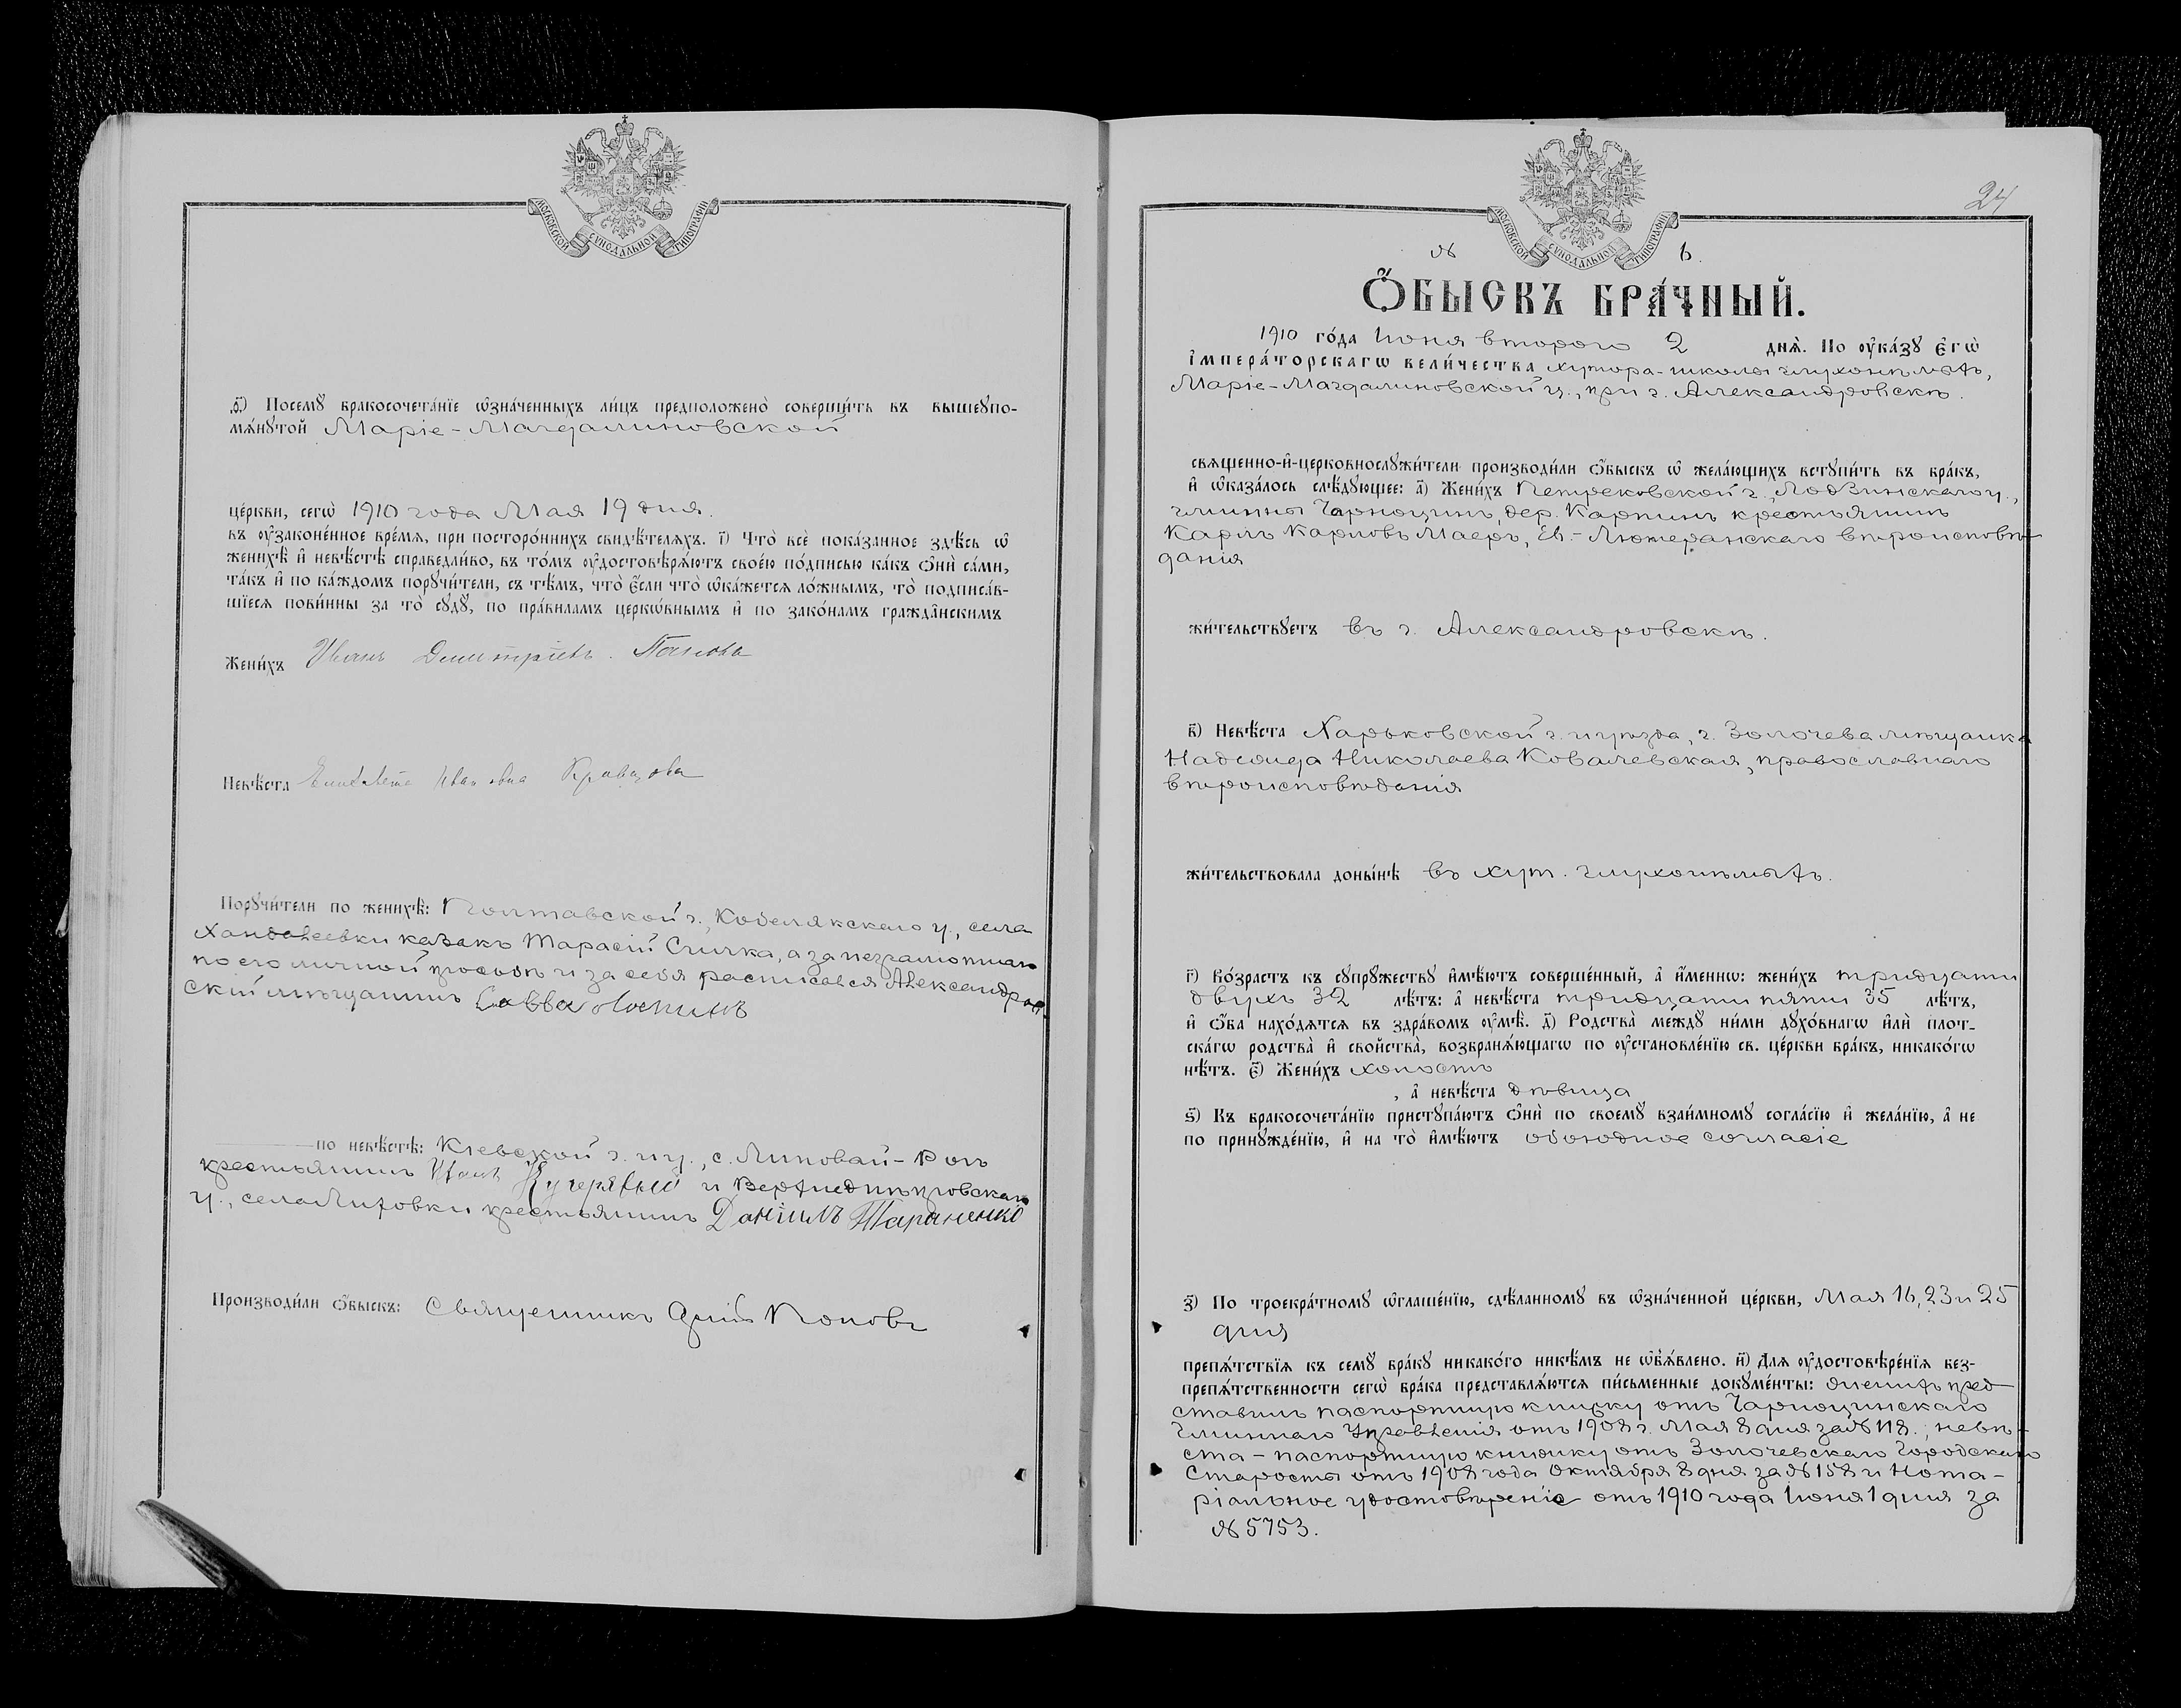 МОСКОВСКОЙ СѴНОДАЛЬНОЙ ТИПОГРАФІИ
ѳ҃) Посемꙋ̀ бракосочета́нїе ѡ҆зна́ченныхъ ли́цъ предположено̀ соверши́ть въ вышеꙋпо-
мѧ́нꙋтой Маріе-Магдалиновской
це́ркви, сегѡ̀ 1910 года Мая 19 дня.
въ ᲂу҆законе́нное вре́мѧ, при посторо́ннихъ свидѣ́телѧхъ. і҃) Что̀ всѐ пока́занное здѣ́сь ѡ҆
женихѣ̀ и҆ невѣ́стѣ справедли́во, въ то́мъ ᲂу҆достовѣрѧ́ютъ свое́ю по́дписью ка́къ ѻ҆нѝ са́ми,
та́къ и҆ по ка́ждомъ порꙋчи́тели, съ тѣ́мъ, что̀ є҆́сли что̀ ѡ҆ка́жетсѧ ло́жнымъ, то̀ подписа́в-
шїесѧ пови́нны за то̀ сꙋдꙋ̀, по пра́виламъ церкѡ́внымъ и҆ по зако́намъ гражда̂нскимъ
Жени́хъ Иванъ Димитріевъ Панова
Невѣ́ста Елисавета Ивановна Кравцова
Порꙋчи́тели по женихѣ̀: Полтавской г., Кобелякскаго у., села
казакъ Тарасій Спичка, а за неграмотнаго
по его личной просьбѣ и за себя росписался Александров-
скій мѣщанинъ Савва
по невѣ́стѣ: Кіевской г. и у., с. Липовай-Рогъ
крестьянинъ Иванъ Кучерявый и Верхнеднѣпровскаго
у., села крестьянинъ Даніилъ Тараненко
Производи́ли ѻ҆́быскъ: Священникъ Попов
24
МОСКОВСКОЙ СѴНОДАЛЬНОЙ ТИПОГРАФІИ
№ 6.
Ѻ҆́БЫСКЪ БРА́ЧНЫЙ.
1910 го́да Іюня второго 2 днѧ̀. По ᲂу҆ка́зꙋ є҆гѡ̀
і҆мпера́торскагѡ вели́чества хутора-школы глухонѣмыхъ,
Маріе-Магдалиновской ц., при г. Александровскѣ.
свѧще́нно-и҆-церковнослꙋжи́тели производи́ли ѻ҆́быскъ ѡ҆ жела́ющихъ встꙋпи́ть въ бра́къ,
и҆ ѡ҆каза́лось слѣ́дꙋющее: а҃) Жени́хъ Петроковской г., Лодзинскаго у.,
гмины Чарноцинъ, дер. Карпинъ крестьянинъ
Карлъ Карловъ Маеръ, Ев.-Лютеранскаго вѣроисповѣ-
данія
жи́тельствꙋетъ въ г. Александровскѣ.
в҃) Невѣ́ста Харьковской г. и уѣзда, г. Золочева мѣщанка
Надежда Николаева Ковалевская, православнаго
вѣроисповѣданія
жи́тельствовала доны́нѣ въ хут. глухонѣмыхъ.
г҃) Во́зрастъ къ сꙋпрꙋ́жествꙋ и҆мѣ́ютъ соверше́нный, а҆ и҆́менно: жени́хъ тридцати
двухъ 32 лѣ́тъ: а҆ невѣ́ста тридцати пяти 35 лѣ́тъ,
и҆ ѻ҆́ба нахо́дѧтсѧ въ здра́вомъ ᲂу҆мѣ̀. д҃) Родства̀ ме́ждꙋ ни́ми дꙋхо́внагѡ и҆лѝ плот-
ска́гѡ родства̀ и҆ свойства̀, возбранѧ́ющагѡ по ᲂу҆становле́нїю св. це́ркви бра́къ, никако́гѡ
нѣ́тъ. є҃) Жени́хъ холостъ
, а҆ невѣ́ста дѣвица
ѕ҃) Къ бракосочета́нїю пристꙋпа́ютъ ѻ҆нѝ по своемꙋ̀ взаи́мномꙋ согла́сїю и҆ жела́нїю, а҆ не
по принꙋжде́нїю, и҆ на то̀ и҆мѣ́ютъ обоюдное согласіе
з҃) По троекра́тномꙋ ѡ҆глаше́нїю, сдѣ́ланномꙋ въ ѡ҆зна́ченной це́ркви, Мая 16, 23 и 25
дня
препѧ́тствїѧ къ семꙋ̀ бра́кꙋ никако́го никѣ́мъ не ѡ҆б̾ѧ́влено. и҃) Длѧ ᲂу҆достовѣре́нїѧ без-
препѧ́тственности сегѡ̀ бра́ка представлѧ́ютсѧ пи́сьменные докꙋме́нты: женихъ пред-
ставилъ паспортную книжку отъ Чарноцинскаго
Гминнаго Управленія отъ 1908 г. Мая 8 дня за № 118.; невѣ-
ста - паспортную книжку отъ Золочевскаго Городскаго
Старосты отъ 1908 года Октября 8 дня за № 158 и Нота-
ріальное удостовѣреніе отъ 1910 года Іюня 1 дня за
№ 5753.